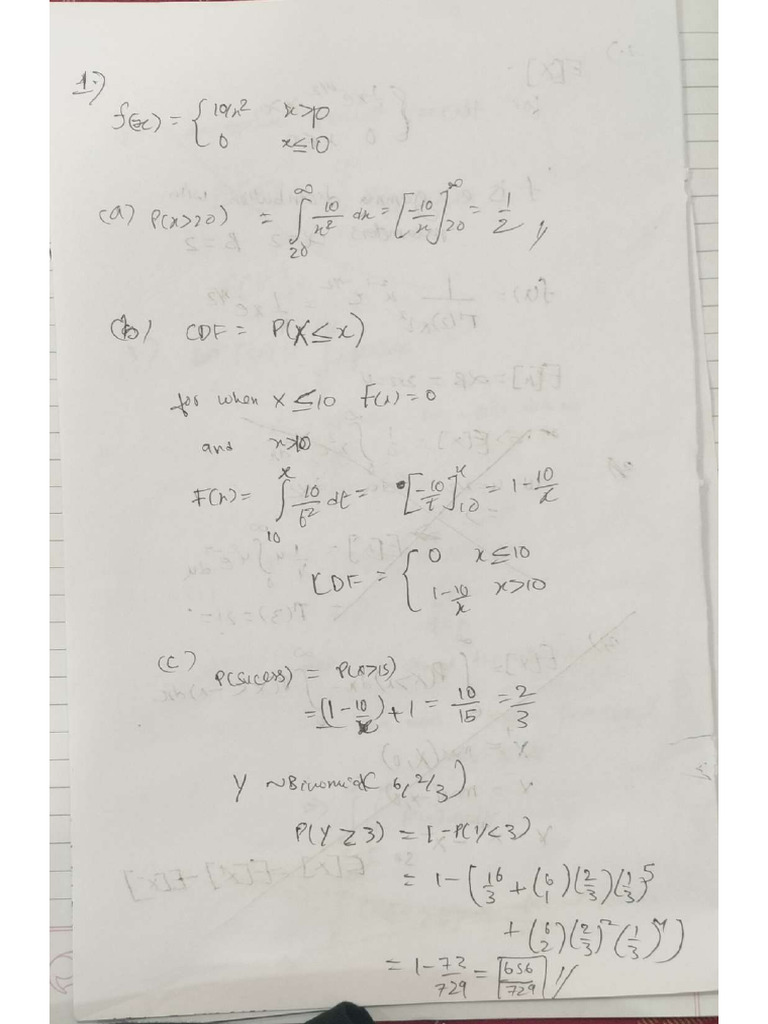 1.)
f(x) = { 10/x² x>10
0 x≤10
(a) P(x>20) = ∫_20^∞ 10/x² dx = [-10/x]_20^∞ = 1/2 //
(b) CDF = P(X≤x)
for when x≤10 F(x)=0
and x>10
F(x) = ∫_10^x 10/t² dt = [-10/t]_10^x = 1-10/x
CDF = { 0 x≤10
1-10/x x>10
(c) P(sucess) = P(x>15)
= (1-10/x)+1 = 10/15 = 2/3
Y ~Binomial( 6, 2/3)
P(Y≥3) = 1-P(Y<3)
= 1-(1/3^6 + (6 1)(2/3)(1/3)^5
+ (6 2)(2/3)²(1/3)^4)
= 1-73/729 = 656/729 //